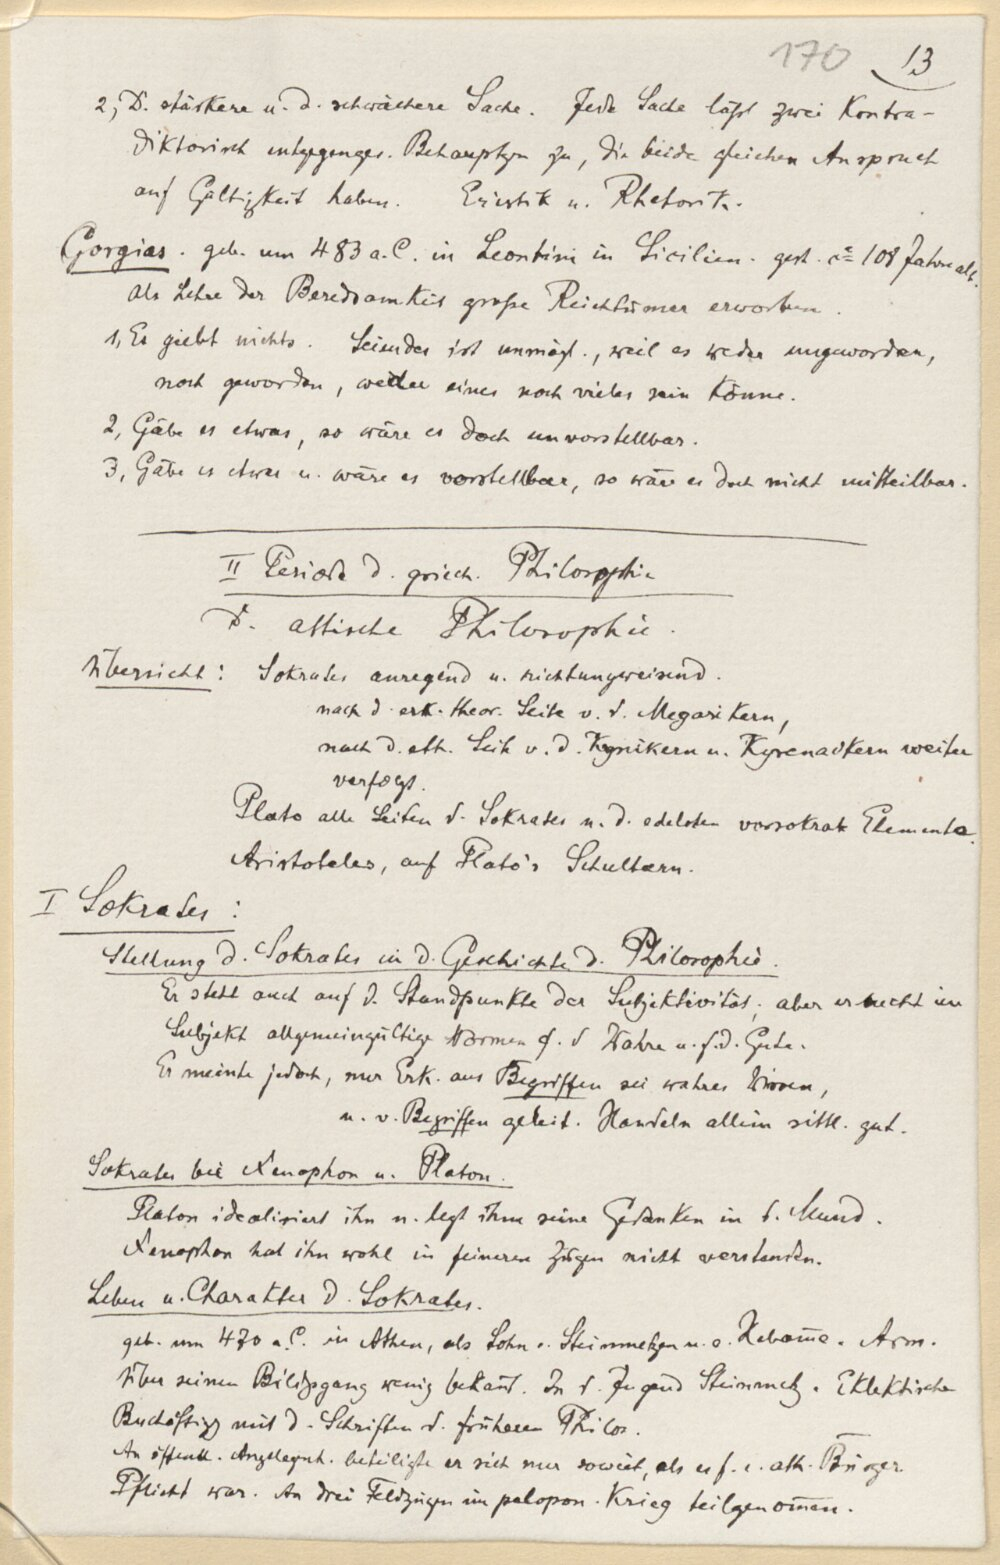 170 13
2, D. stärkere u. d. schwächere Sache. Jede Sache läßt zwei Kontra-
diktorisch entgegenges. Behauptgn zu, die beide gleichen Anspruch
auf Gültigkeit haben. Eristik u. Rhetorik.
Gorgias. geb. um 483 a. C. in Leontini in Sicilien. gest. ca 108 Jahre alt.
Als Lehrer der Beredsamkeit große Reichtümer erworben.
1, Es giebt nichts. Seiendes ist unmögl., weil es weder ungeworden,
noch geworden, weder eines noch vieles sein könne.
2, Gäbe es etwas, so wäre es doch unvorstellbar.
3, Gäbe es etwas u. wäre es vorstellbar, so wäre es doch nicht mitteilbar.
II Periode d. griech. Philosophie
D. attische Philosophie.
Übersicht: Sokrates anregend u. richtungweisend.
nach d. erk. theor. Seite v. d. Megarikern,
nach d. eth. Seite v. d. Kynikern u. Kyrenaikern weiter
verfolgt.
Plato alle Seiten d. Sokrates u. d. edelsten vorsokrat. Elemente.
Aristoteles, auf Plato's Schultern.
I Sokrates:
Stellung d. Sokrates in d. Geschichte d. Philosophie.
Er steht auch auf d. Standpunkte der Subjektivität; aber er sucht im
Subjekt allgemeingültige Normen f. d. Wahre u. f. d. Gute.
Er meinte jedoch, nur Erk. aus Begriffen sei wahres Wissen,
u. v. Begriffen geleit. Handeln allein sittl. gut.
Sokrates bei Xenophon u. Platon.
Platon idealisiert ihn u. legt ihm seine Gedanken in d. Mund.
Xenophon hat ihn wohl in feineren Zügen nicht verstanden.
Leben u. Charakter d. Sokrates.
geb. um 470 a. C. in Athen, als Sohn e. Steinmetzen u. e. Hebam̅e. Arm.
Über seinen Bildgsgang wenig bekan̅t. In d. Jugend Steinmetz. Eklektische
Beschäftigg mit d. Schriften d. früheren Philos.
An öffentl. Angelegnh. beteiligte er sich nur soweit, als es f. e. ath. Bürger
Pflicht war. An drei Feldzügen im pelopon. Krieg teilgenom̅en.